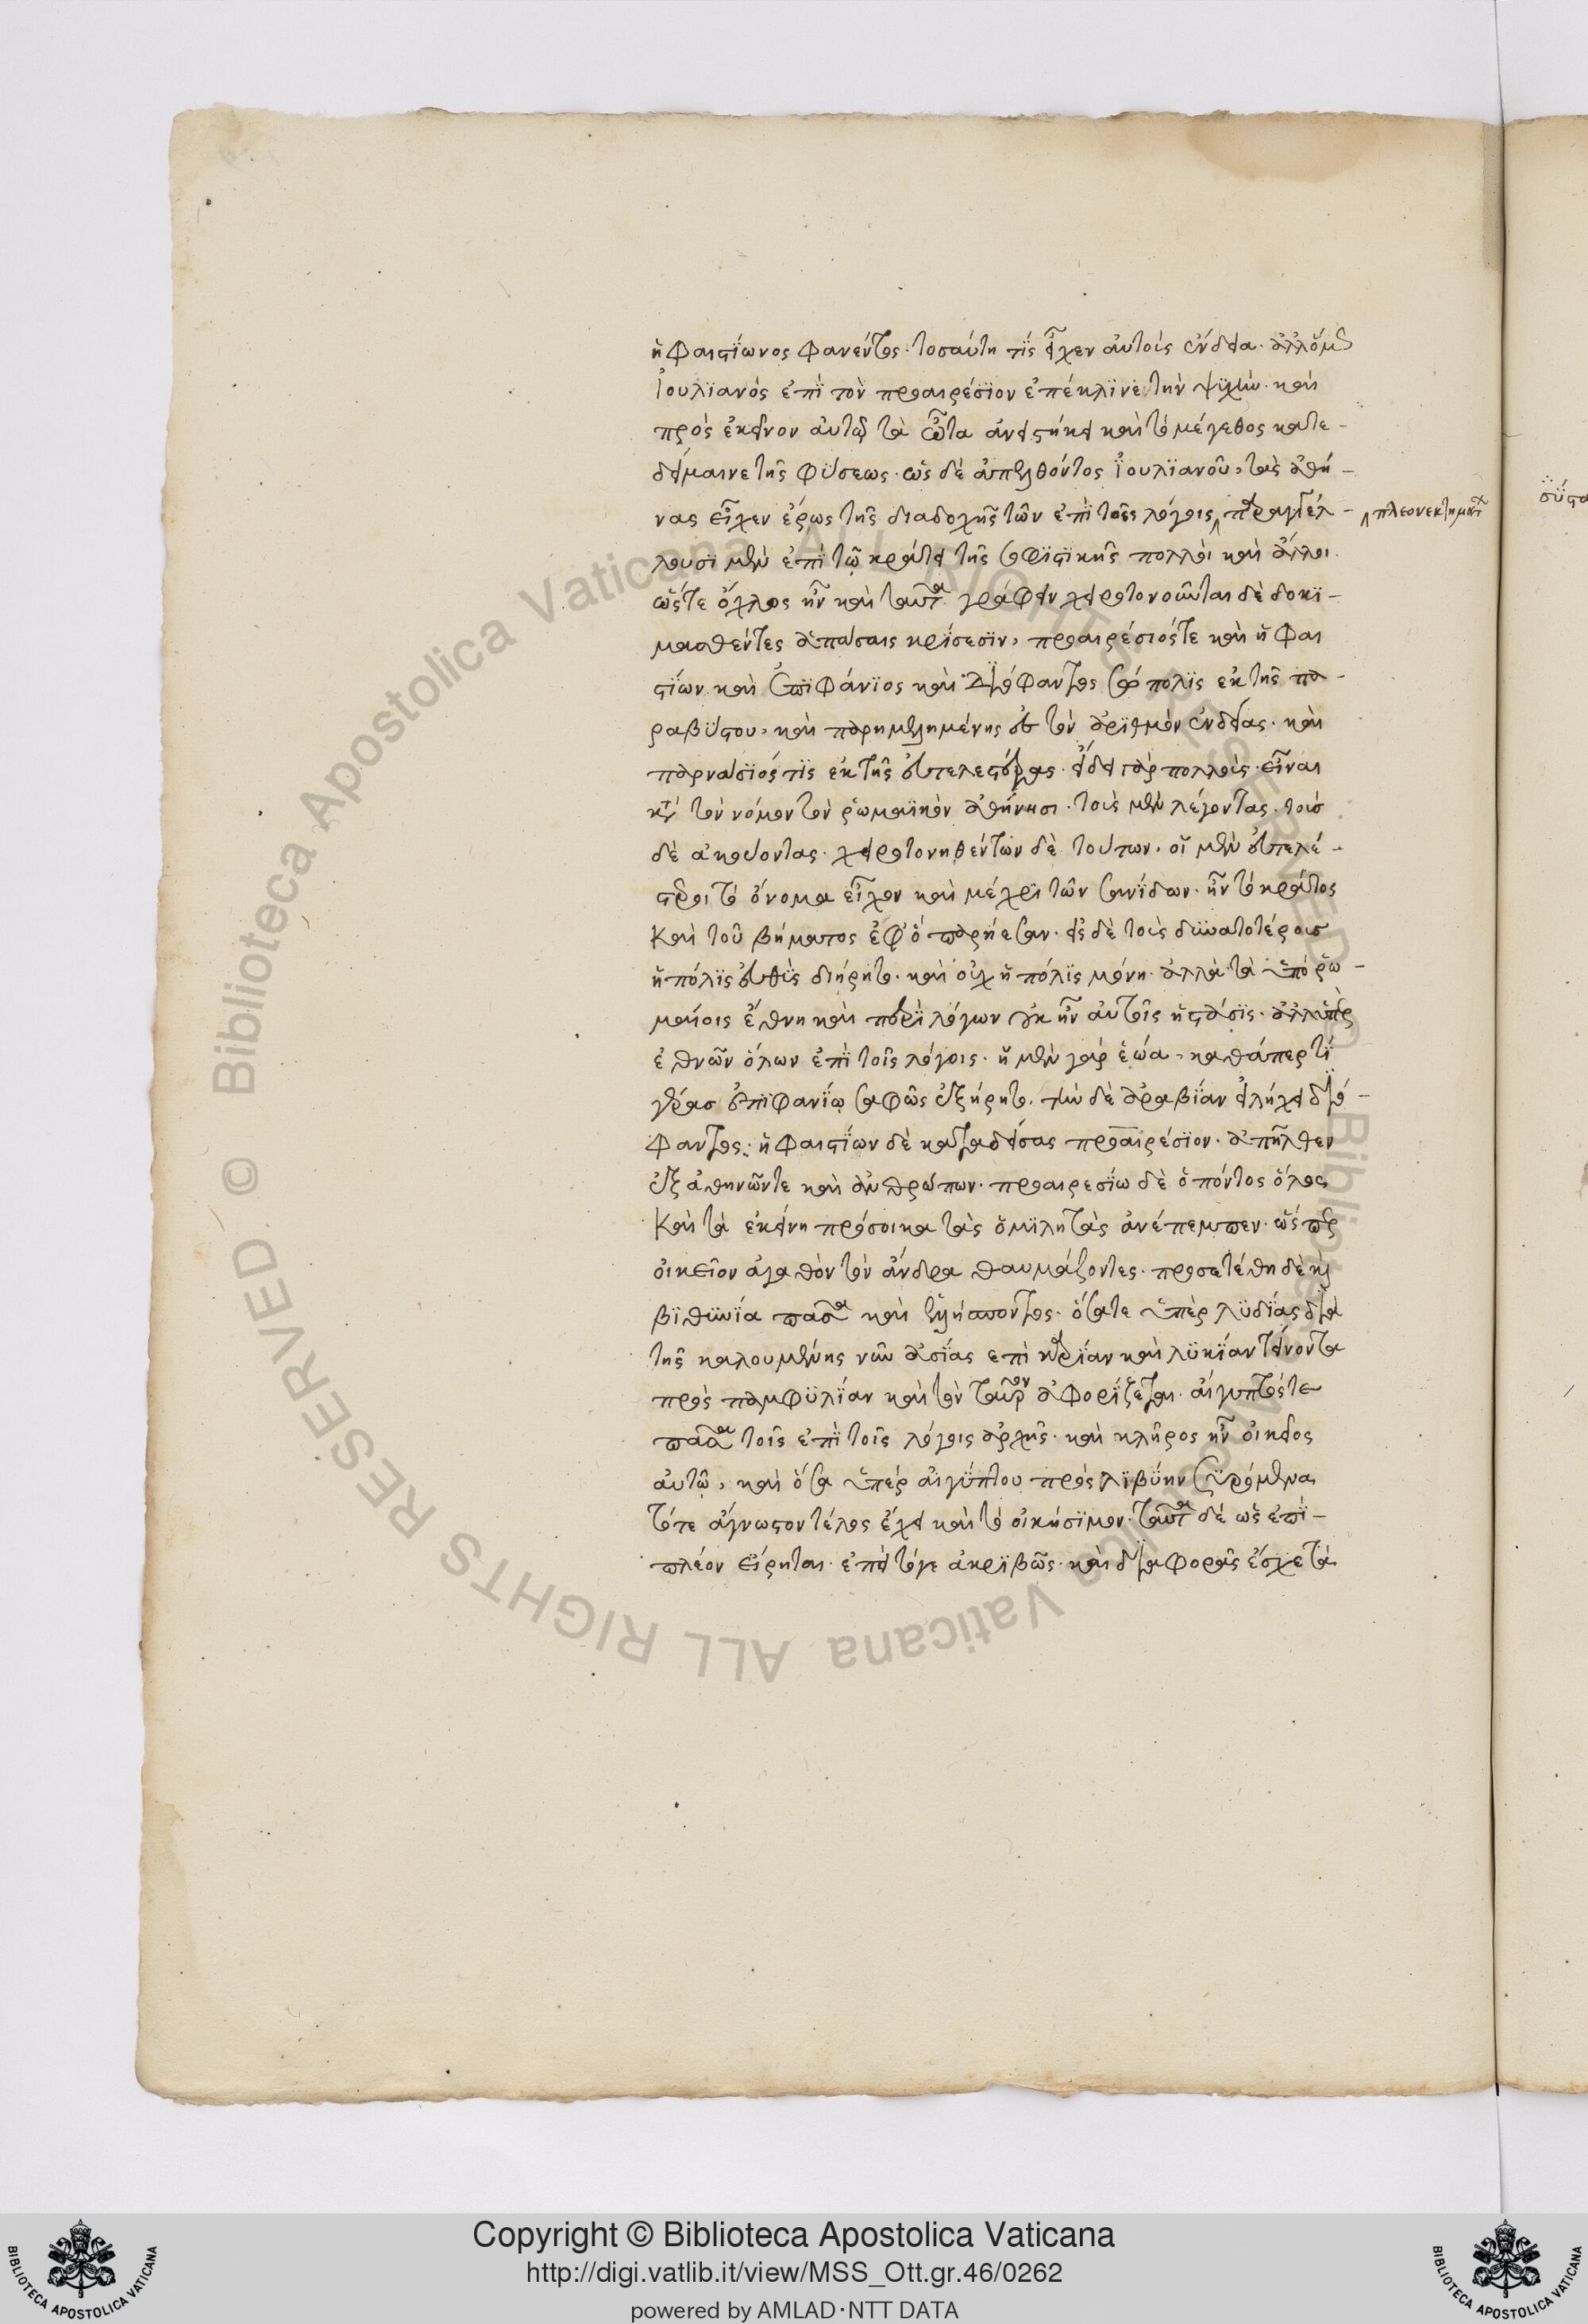 ἡφαιστίωνος φανέντος· τοσαύτη τίς εἶχεν αὐτοὺς ἔνδεια· ἀλλ' ὁ μὲν
Ἰουλιανὸς ἐπὶ τὸν προαιρέσιον ἐπέκλινε τὴν ψυχὴν· καὶ
πρὸς ἐκεῖνον αὐτῷ τὰ ὦτα ἀνεστήκει καὶ τὸ μέγεθος κατε-
δείμαινε τῆς φύσεως· ὡς δὲ ἀπελθόντος Ἰουλιανοῦ, τὰς ἀθή-
νας εἶχεν ἔρως τῆς διαδοχῆς τῶν ἐπὶ τοῖς λόγοις παραγγέλ-
πλεονεκτημάτων
λουσι μὲν ἐπὶ τῷ κράτει τῆς σοφιστικῆς πολλοὶ καὶ ἄλλοι.
ὥστε ὄχλος ἦν καὶ ταῦτα γράφειν χειροτονοῦνται δὲ δοκι-
μασθέντες ἁπάσαις κρίσεσιν, προαιρέσιός τε καὶ ἡφαι
στίων καὶ Ἐπιφάνιος καὶ Διόφαντος σώπολις ἐκ τῆς πα-
ραβύστου, καὶ παρημελημένης εἰς τὸν ἀριθμὸν ἐνδείας· καὶ
παρνάσιός τις ἐκ τῆς εὐτελεστέρας· ἔδει γὰρ πολλοὺς εἶναι
κατὰ τὸν νόμον τὸν ῥωμαϊκὸν ἀθήνησι· τοὺς μὲν λέγοντας· τοὺσ
δὲ ἀκούοντας· χειροτονηθέντων δὲ τούτων· οἱ μὲν εὐτελέ-
στεροι τὸ ὄνομα εἶχον καὶ μέχρι τῶν σανίδων· ἦν τὸ κράτος
Καὶ τοῦ βήματος ἐφ' ὃ παρῄεσαν· εἰς δὲ τοὺς δυνατωτέρους
ἡ πόλις εὐθὺς διῄρητο· καὶ οὐχ ἡ πόλις μόνη· ἀλλὰ τὰ ὑπὸ ῥω-
μαίοις ἔθνη καὶ περὶ λόγων οὐκ ἦν αὐτοῖς ἡ στάσις· ἀλλ' ὑπὲρ
ἐθνῶν ὅλων ἐπὶ τοῖς λόγοις· ἡ μὲν γὰρ ἑῴα, καθάπερ τί
γέρασ ἐπιφανίῳ σαφῶς ἐξῄρητο. τὴν δὲ ἀραβίαν εἰλήχει διό-
φαντος· ἡφαιστίων δὲ καταδείσας προαιρέσιον· ἀπῆλθεν
ἐξ ἀθηνῶν τε καὶ ἀνθρώπων· προαιρεσίω δὲ ὁ πόντος ὅλος
Καὶ τὰ ἐκείνη πρόσοικα τὰς ὁμιλητὰς ἀνέπεμπεν· ὥσπερ
οἰκεῖον ἀγαθὸν τὸν ἄνδρα θαυμάζοντες· προσετέθη δὲ καὶ
βιθυνία πᾶσα καὶ ἑλήσποντος· ὅσα τε ὑπὲρ λυδίας διὰ
τῆς καλουμένης νῦν ἀσίας ἐπὶ καρίαν καὶ λυκίαν τείνοντα
πρὸς παμφυλίαν καὶ τὸν ταῦρον ἀφορίζεται· αἴγυπτός τε
πᾶσα τοῖς ἐπὶ τοῖς λόγοις ἀρχῆς· καὶ κλῆρος ἦν οἰκεῖος
αὐτῷ, καὶ ὅσα ὑπὲρ αἰγύπτου πρὸς λιβύην συρόμενα
τό τε ἄγνωστον τέλος ἔχει καὶ τὸ οἰκήσιμον· ταῦτα δὲ ὡς ἐπὶ-
πλέον εἴρηται· ἐπεὶ τό γε ἀκριβῶς· καὶ διαφορὰς ἔσχε τὰ